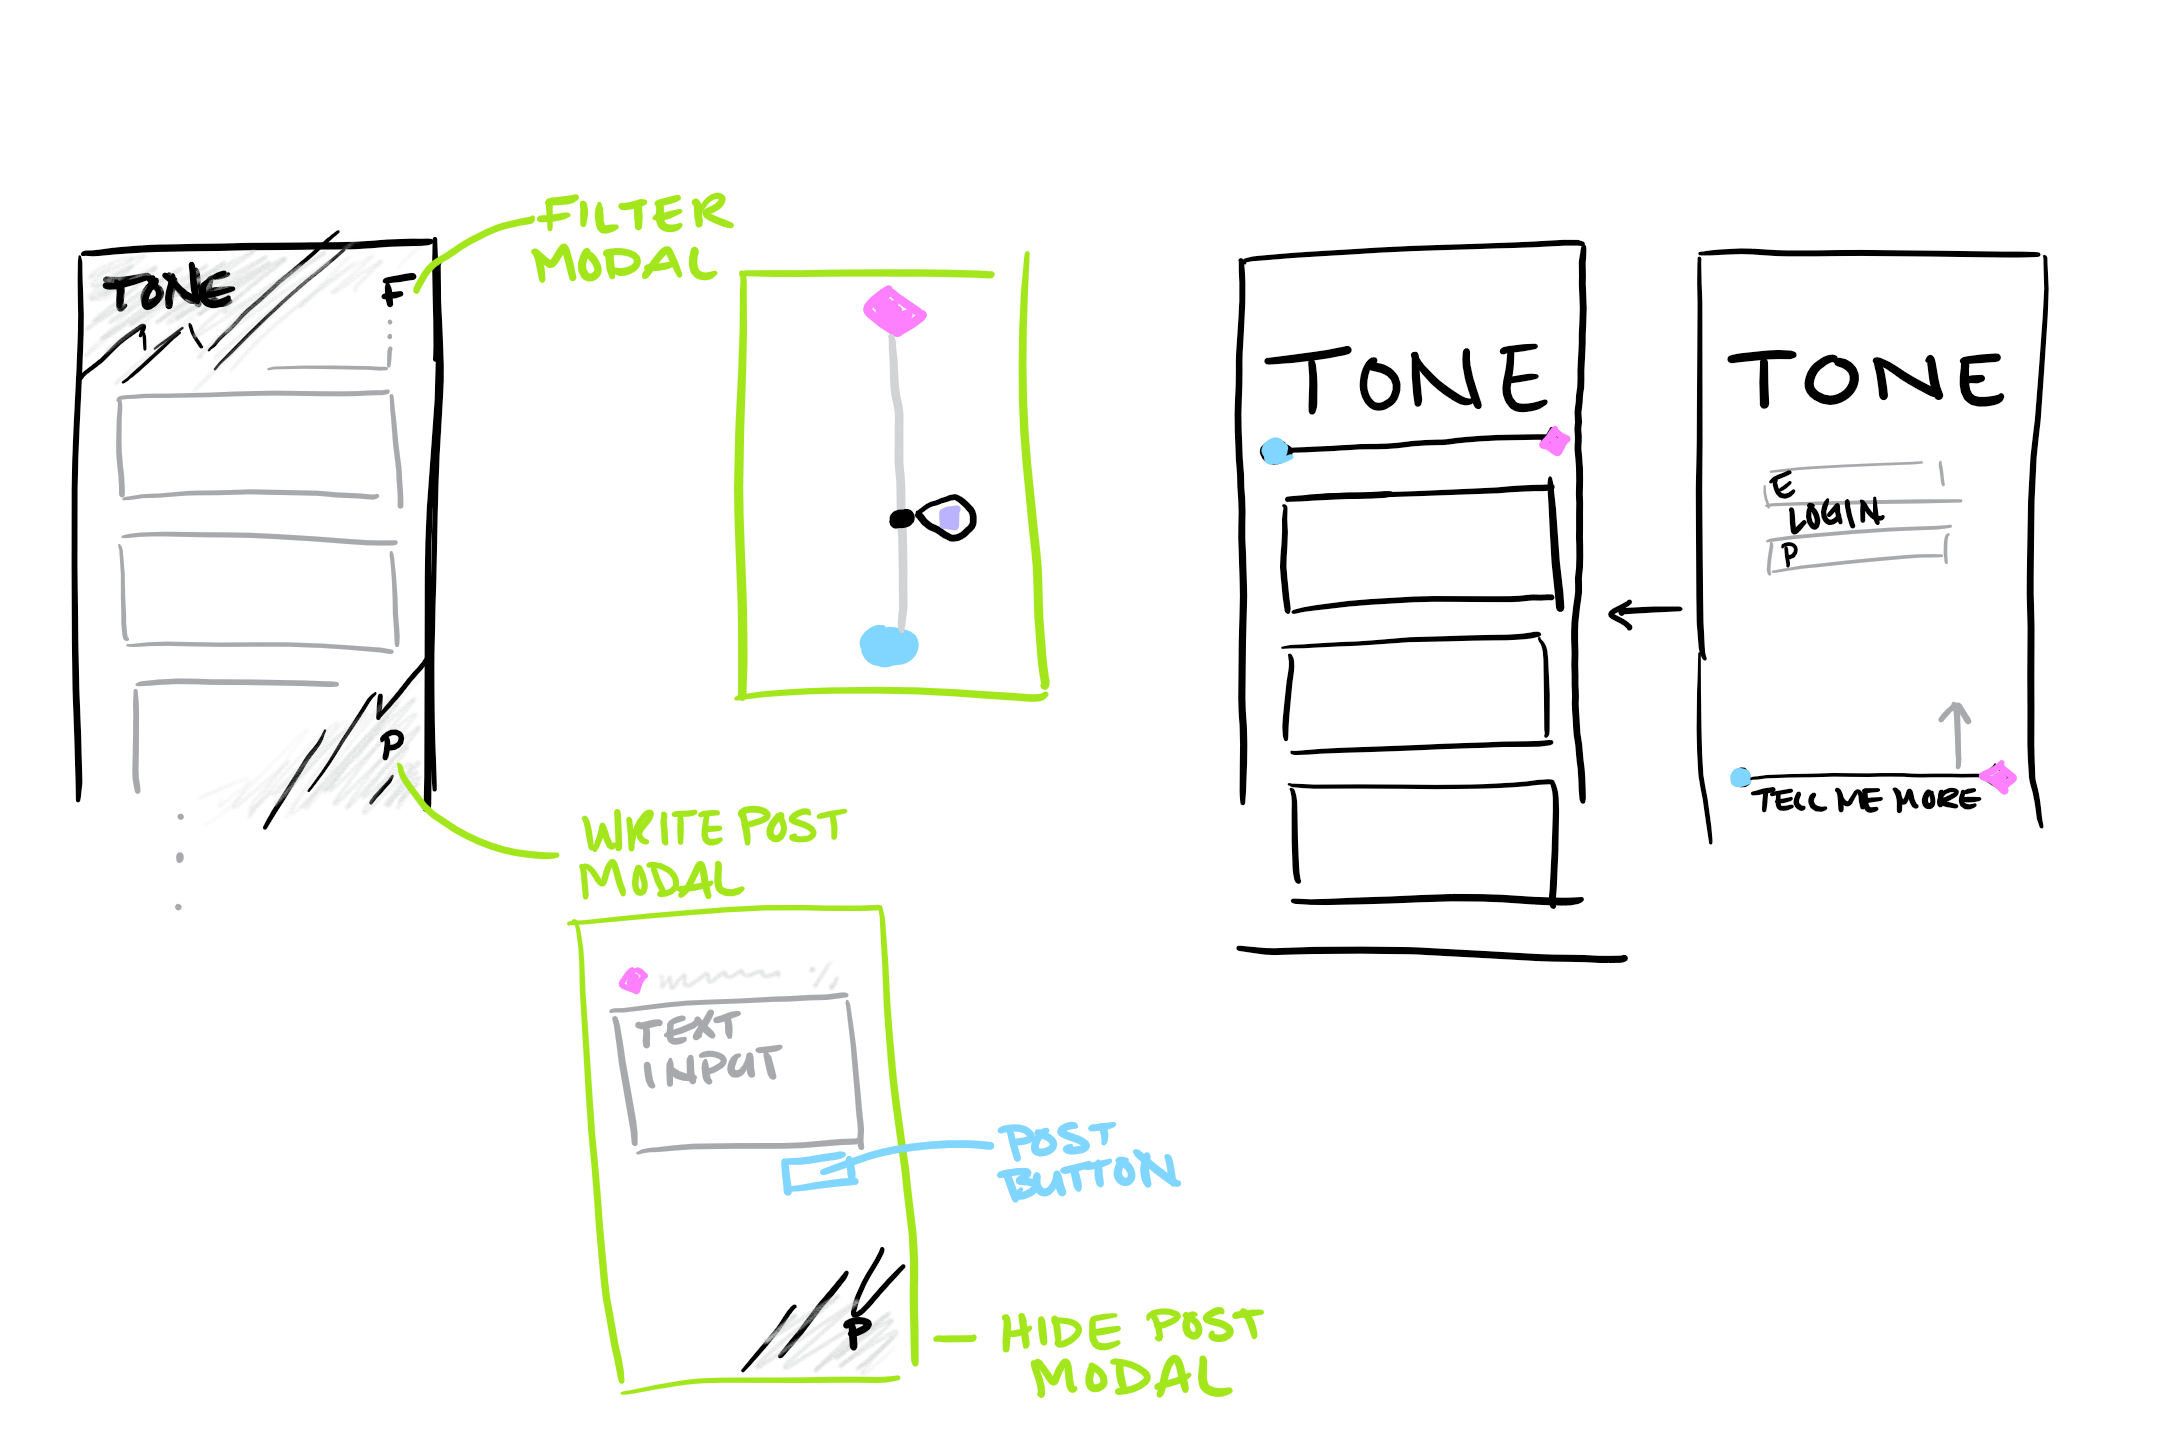 FILTER
MODAL
TONE
F
P
WRITE POST
MODAL
TEXT
INPUT
POST
BUTTON
P
HIDE POST
MODAL
TONE
TONE
E
LOGIN
P
TELL ME MORE